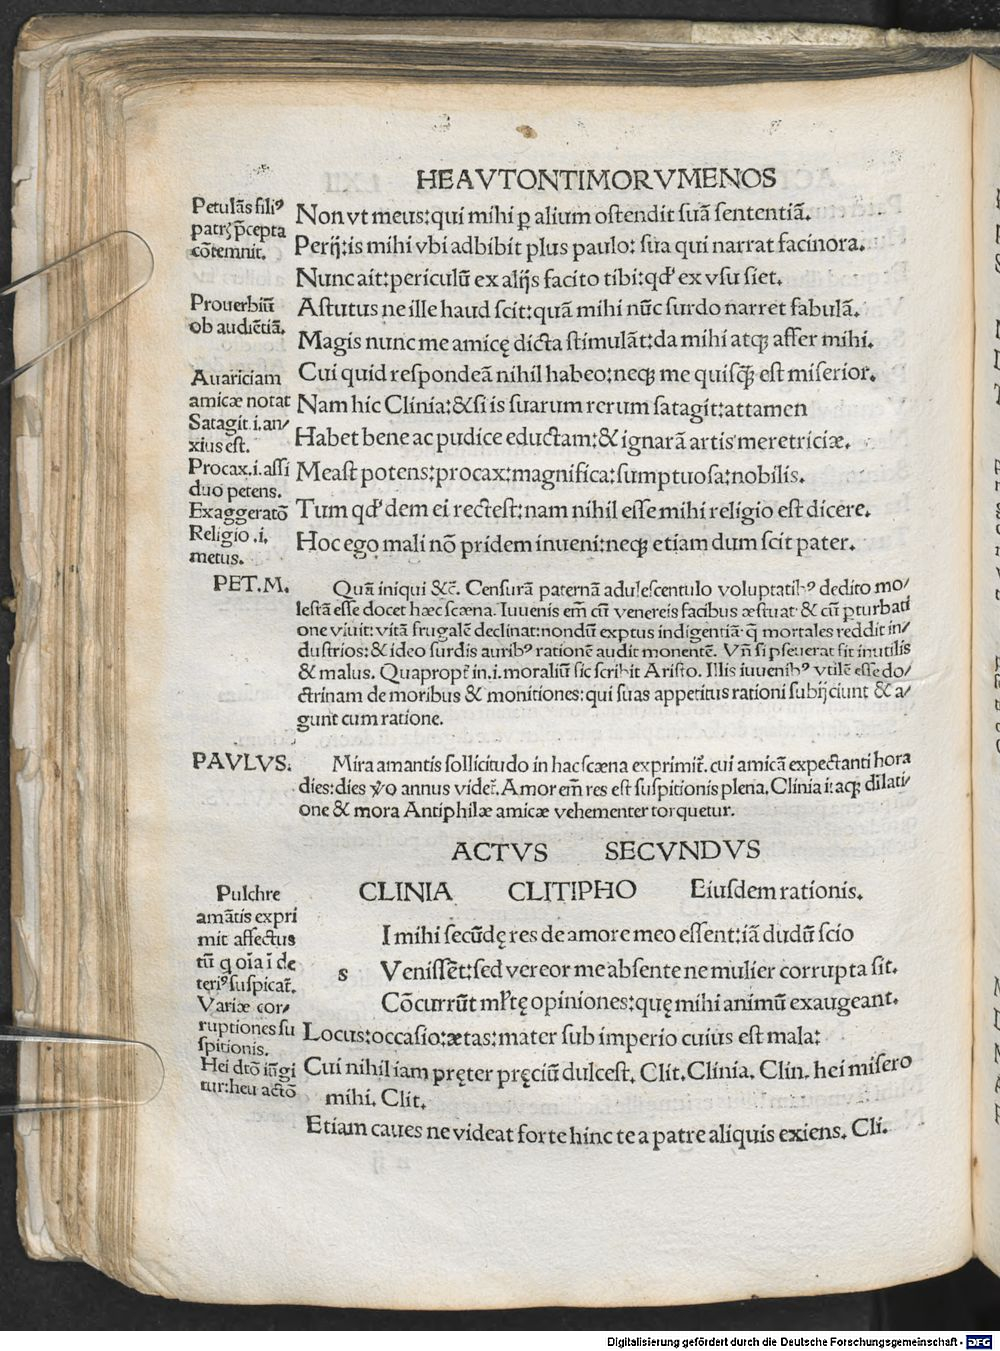 HEAVTONTIMORVMENOS
Petulãs filiꝰ
patrꝫ p̃cepta
cõtemnit.
Non vt meus:qui mihi ꝑ alium ostendit suã sententiã.
Perij:is mihi vbi adbibit plus paulo: sua qui narrat facinora.
Nunc ait:periculũ ex alijs facito tibi:qđ ex vsu siet.
Prouerbiũ
ob audiẽtiã.
Astutus ne ille haud scit:quã mihi nũc surdo narret fabulã.
Magis nunc me amicę dicta stimulãt:da mihi atqꝫ affer mihi.
Auariciam
amicæ notat
Satagit.i.an/
xius est.
Procax.i.assi
duo petens.
Exaggeratõ
Religio.i.
metus.
Cui quid respondeã nihil habeo:neqꝫ me quisq̃ꝫ est miserior.
Nam hic Clinia:&si is suarum rerum satagit:attamen
Habet bene ac pudice eductam:& ignarã artis meretriciæ.
Meast potens:procax:magnifica:sumptuosa:nobilis.
Tum qđ dem ei rectest:nam nihil esse mihi religio est dicere.
Hoc ego mali nõ pridem inueni:neqꝫ etiam dum scit pater.
PET.M.
Quã iniqui &c̃. Censurã paternã adulescentulo voluptatibꝰ dedito mo/
lestã esse docet hæc scæna. Iuuenis em̃ cũ venereis facibus æstuat & cũ ꝑturbati
one viuit: vitã frugalẽ declinat:nondũ exptus indigentiã q̃ mortales reddit in/
dustrios:& ideo surdis auribꝰ rationẽ audit monentẽ. Vñ si pseuerat fit inutilis
& malus. Quapropt̃ in.i.moraliũ sic scribit Aristo. Illis iuuenibꝰ vtilẽ esse do/
ctrinam de moribus & monitiones:qui suas appetitus rationi subijciunt & a/
gunt cum ratione.
PAVLVS.
Mira amantis sollicitudo in hac scæna exprimit̃. cui amicã expectanti hora
dies:dies ṽo annus videt̃. Amor em̃ res est suspitionis plena. Clinia i:aqꝫ dilati/
one & mora Antiphilæ amicæ vehementer torquetur.
ACTVS SECVNDVS
CLINIA CLITIPHO Eiusdem rationis.
Pulchre
amãtis expri
mit affectus
tũ q oĩa ĩ de
teriꝰ suspicat̃.
Variæ cor/
ruptiones su
spitionis.
Hei dtõ iũgi
tur:heu actõ
s
I mihi secũdę res de amore meo essent:iã dudũ scio
Venissẽt:sed vereor me absente ne mulier corrupta sit.
Cõcurrũt ml̃tę opiniones:quę mihi animũ exaugeant.
Locus:occasio:ætas:mater sub imperio cuius est mala:
Cui nihil iam pręter pręciũ dulcest. Clit.Clinia. Clin. hei misero
mihi. Clit.
Etiam caues ne videat forte hinc te a patre aliquis exiens. Cli.
Digitalisierung gefördert durch die Deutsche Forschungsgemeinschaft - DFG